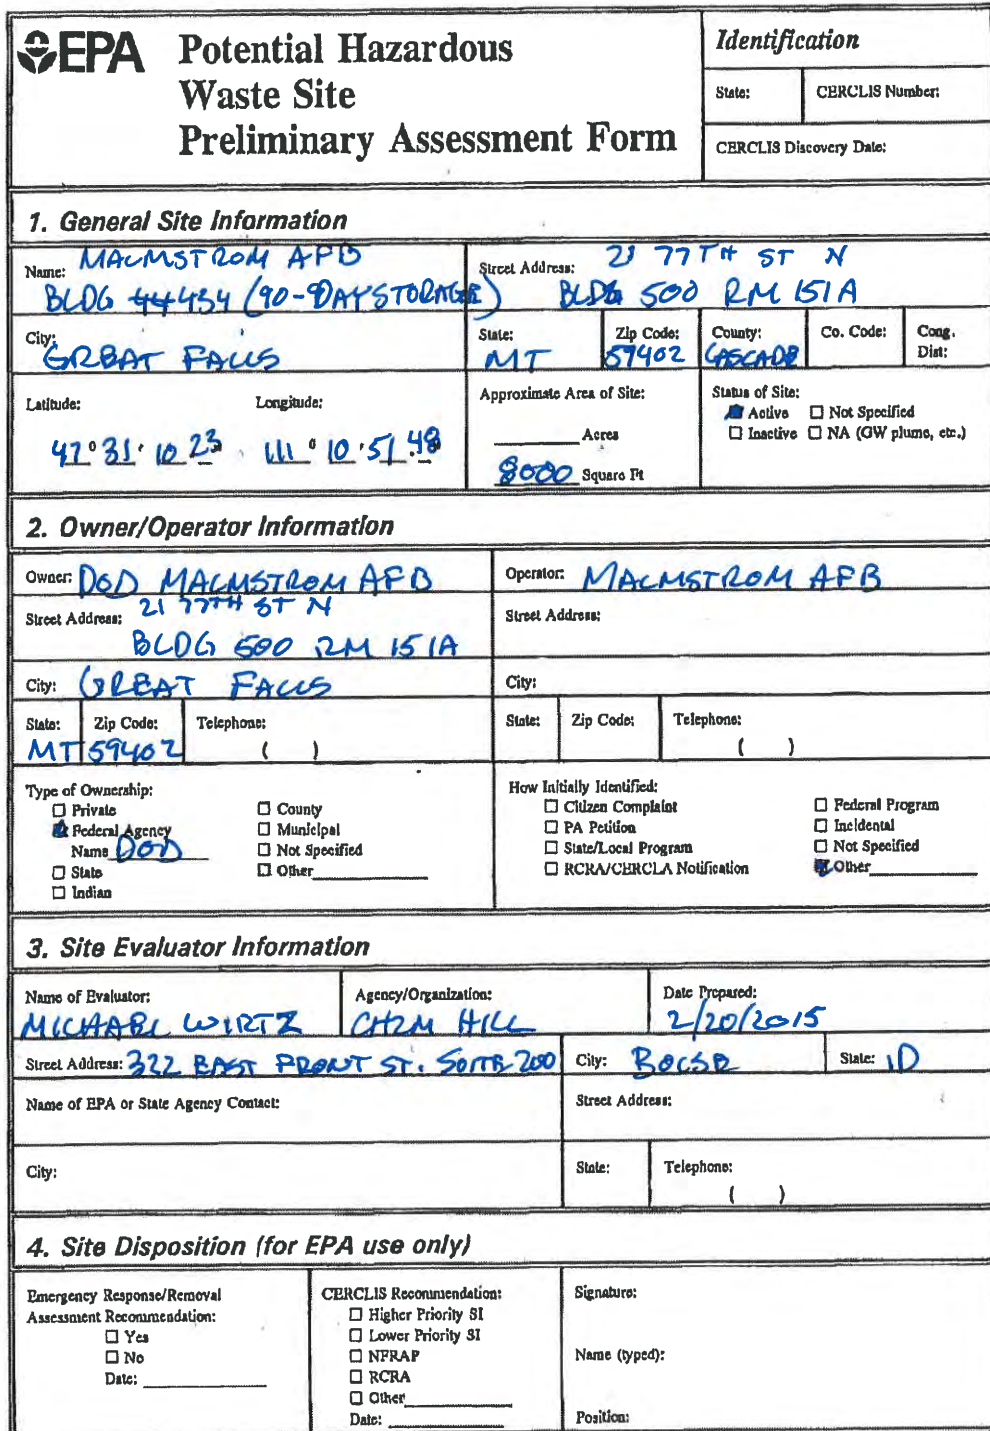 EPA Potential Hazardous
Waste Site
Preliminary Assessment Form
Identification
State: CERCLIS Number:
CERCLIS Discovery Date:
1. General Site Information
Name: MALMSTROM AFB
BLDG 44434 (90-DAY STORAGE)
Street Address: 21 77TH ST N
BLDG 500 RM 151A
City: GREAT FALLS
State: MT
Zip Code: 59402
County: CASCADE
Co. Code:
Cong. Dist:
Latitude: Longitude:
47° 31' 10.23 111° 10' 51.48
Approximate Area of Site:
Acres
8000 Square Ft
Status of Site:
Active Not Specified
Inactive NA (GW plume, etc.)
2. Owner/Operator Information
Owner: DOD MALMSTROM AFB
Operator: MALMSTROM AFB
Street Address: 21 77TH ST N
BLDG 500 RM 151A
Street Address:
City: GREAT FALLS
City:
State: MT Zip Code: 59402 Telephone: ( )
State: Zip Code: Telephone: ( )
Type of Ownership:
Private County
Federal Agency Municipal
Name DOD Not Specified
State Other
Indian
How Initially Identified:
Citizen Complaint Federal Program
PA Petition Incidental
State/Local Program Not Specified
RCRA/CERCLA Notification Other
3. Site Evaluator Information
Name of Evaluator: MICHAEL WIRTZ
Agency/Organization: CH2M HILL
Date Prepared: 2/20/2015
Street Address: 322 EAST FRONT ST. SUITE 200
City: BOISE
State: ID
Name of EPA or State Agency Contact:
Street Address:
City:
State: Telephone: ( )
4. Site Disposition (for EPA use only)
Emergency Response/Removal
Assessment Recommendation:
Yes
No
Date:
CERCLIS Recommendation:
Higher Priority SI
Lower Priority SI
NFRAP
RCRA
Other
Date:
Signature:
Name (typed):
Position: